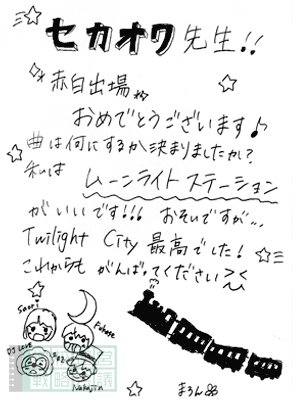 セカオワ先生!!
赤白出場
おめでとうございます♪
曲は何にするか決まりましたか?
私は ムーンライト ステーション
がいいです!!! おそいですが…
Twilight City 最高でした!
これからも がんばってください><
Saori
Fukase
DJ LOVE
Nakajin
まろん